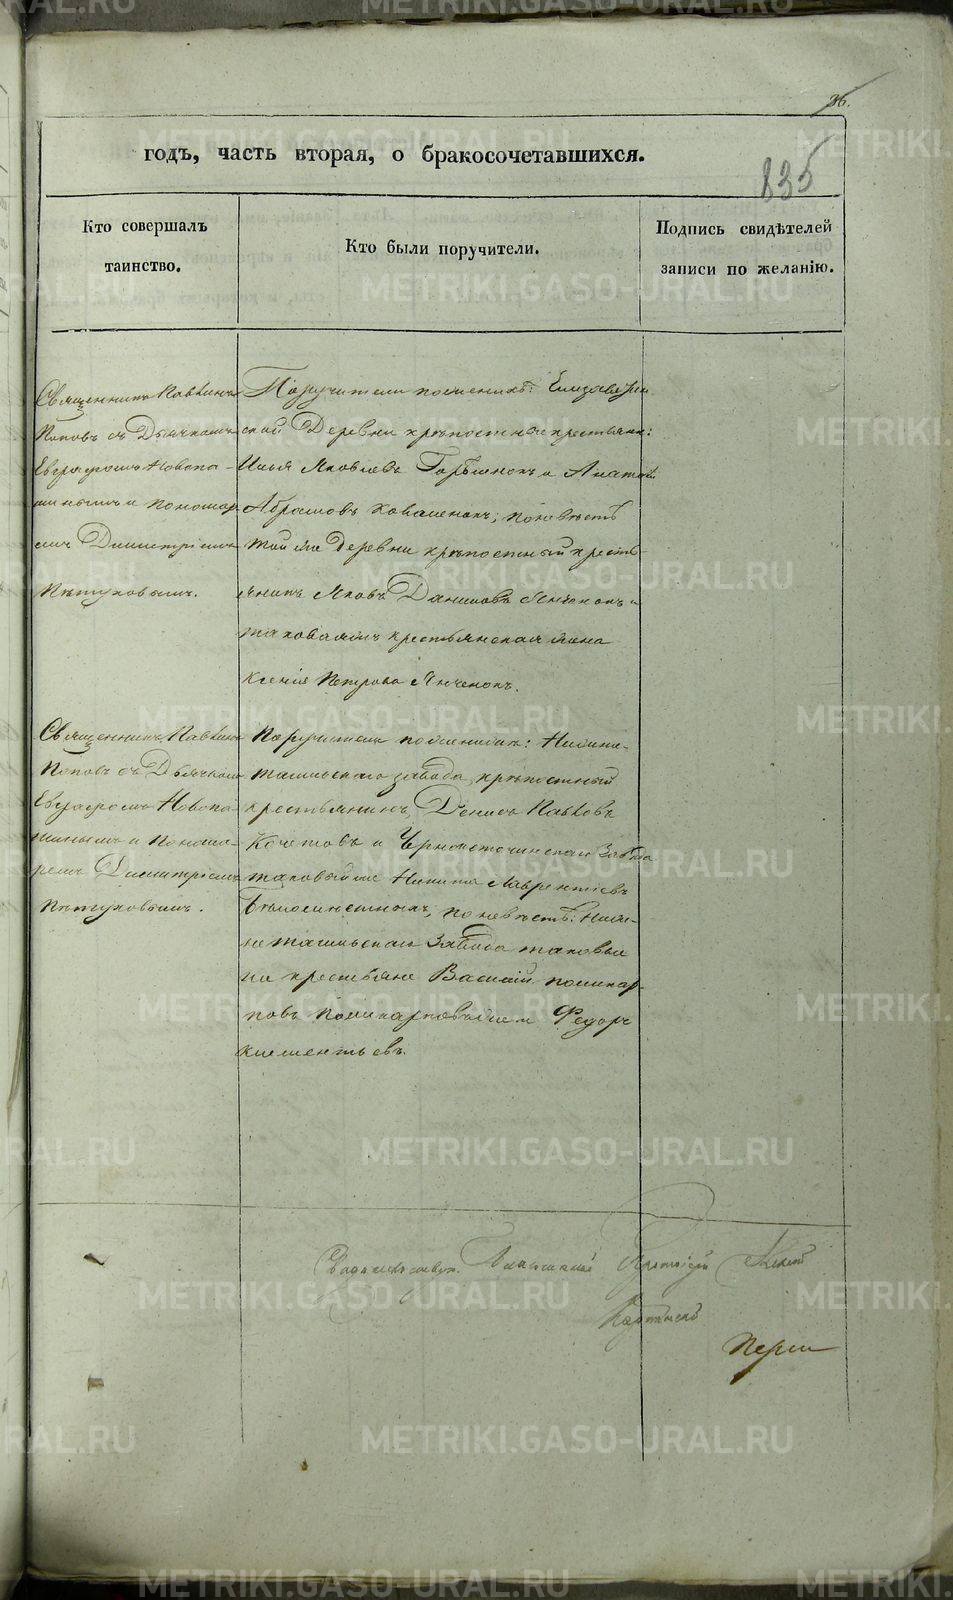 36.
835
годъ, часть вторая, о бракосочетавшихся.
Кто совершалъ
таинство.
Кто были поручители.
Подпись свидѣтелей
записи по желанію.
Священникъ Павлинъ
Поповъ съ Дьячкомъ
Евграфомъ Новопа-
шинымъ и Пономар
емъ Димитріемъ
Пѣтуховымъ.
Поручители поженихѣ: Елизаветин
ской Деревни крѣпостные крестьяне:
Илья Яковлевъ и
Абрамовъ Коваленокъ; поневѣстѣ
той же деревни крѣпостный кресть-
янинъ Яковъ Даниловъ Янченокъ и
таковаяжъ крестьянская жена
Ксенія Петрова Янченокъ.
Священникъ Павлинъ
Поповъ съ Дьячкомъ
Евграфомъ Новопа-
шинымъ и Понома-
ремъ Димитріемъ
Пѣтуховымъ.
Поручители поженихѣ: Нижне-
тагильскаго завода крѣпостный
крестьянинъ Денисъ Павловъ
Кочетовъ и Черноисточинскаго Завода
таковый же Никита Лаврентьевъ
поневѣстѣ: Ниж-
нетагильскаго Завода таковые
же крестьяне Василій Поликар-
повъ и Федоръ
Клементьевъ.
METRIKI.GASO-URAL.RU